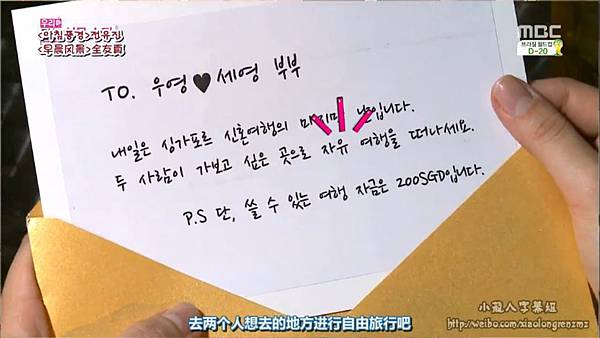 우리
MBC
<아침풍경>전유진
<早晨风景>全友真
브라질 월드컵
D-20
TO. 우영♥세영 부부
내일은 싱가포르 신혼여행의 마지막 날입니다.
두 사람이 가보고 싶은 곳으로 자유 여행을 떠나세요.
P.S 단, 쓸 수 있는 여행 자금은 200SGD입니다.
去两个人想去的地方进行自由旅行吧
小龍人字幕組
http://weibo.com/xiaolongrenzmz